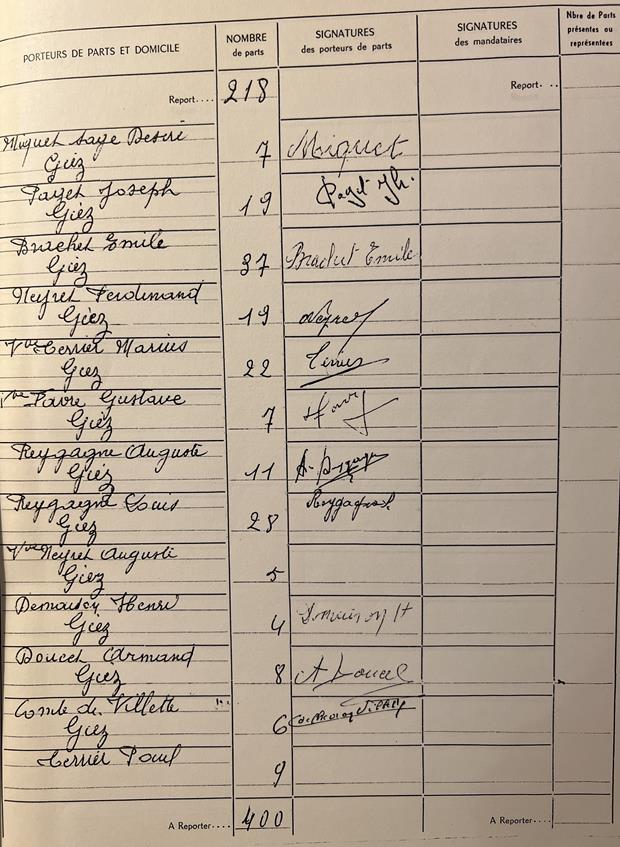 PORTEURS DE PARTS ET DOMICILE
NOMBRE
de parts
SIGNATURES
des porteurs de parts
SIGNATURES
des mandataires
Nbre de Parts
présentes ou
représentées
Report.... 218 Report...
Miquet Saye Désiré
Giez 7 Miquet
Paget Joseph
Giez 19 Paget Jh.
Brachet Emile
Giez 37 Brachet Emile
Neyret Ferdinand
Giez 19 Neyret
Vve Terrier Marius
Giez 22
Vve Favre Gustave
Giez 7
Reygagne Auguste
Giez 11
Reygagne Louis
Giez 28
Vve Neyret Auguste
Giez 5
Demaison Henri
Giez 4 Demaison H
Doucet Armand
Giez 8 A Doucet
Comte de Villette
Giez 6
Terrier Paul
9
A Reporter.... 400 A Reporter....